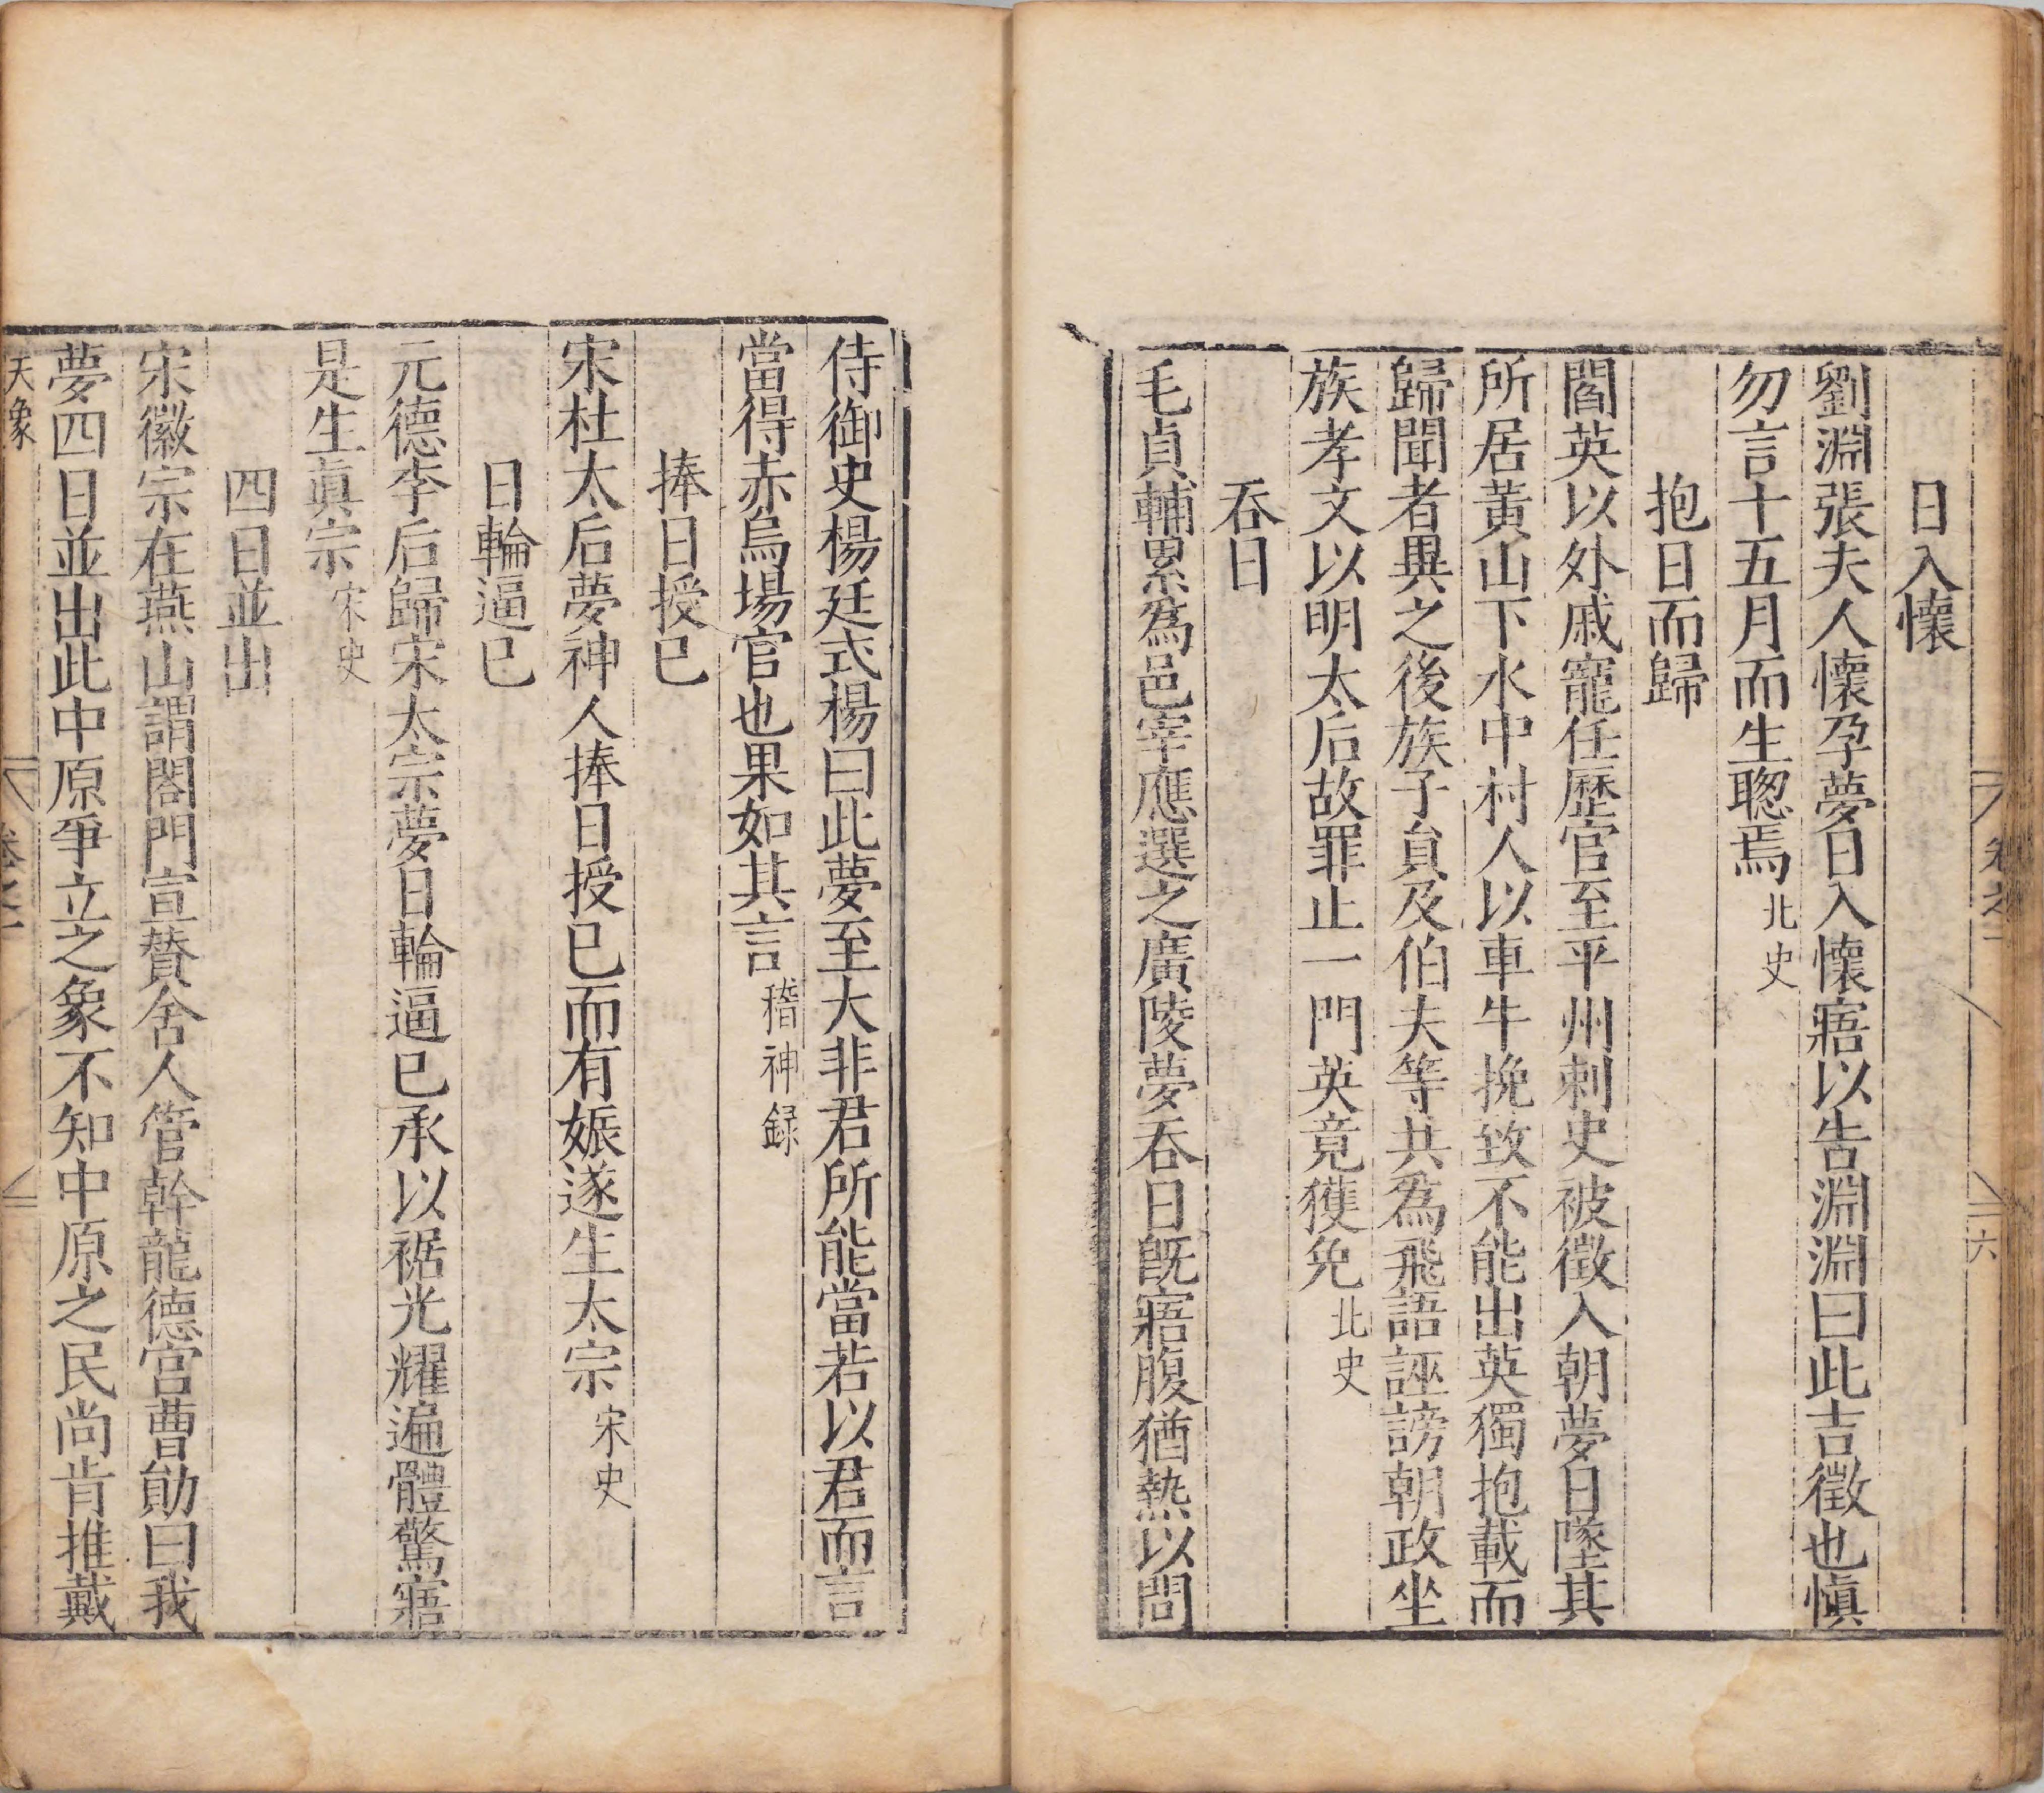 日入懷
劉淵張夫人懷孕夢日入懷寤以告淵淵曰此吉徵也愼
勿言十五月而生聦焉北史
抱日而歸
閻英以外戚寵任歷官至平州刺史被徵入朝夢日墜其
所居黃山下水中村人以車牛挽致不能出英獨抱載而
歸聞者異之後族子員及伯夫等共爲飛語誣謗朝政坐
族孝文以明太后故罪止一門英竟獲免北史
吞日
毛貞輔累爲邑宰應選之廣陵夢吞日旣寤腹猶熱以問
六
侍御史楊廷式楊曰此夢至大非君所能當若以君而言
當得赤烏場官也果如其言稽神録
捧日授已
宋杜太后夢神人捧日授已而有娠遂生太宗宋史
日輪逼已
元德李后歸宋太宗夢日輪逼已承以裾光耀遍體驚寤
是生眞宗宋史
四日並出
宋徽宗在燕山謂閤門宣贊舍人管幹龍德宮曹勛曰我
夢四日並出此中原爭立之象不知中原之民尚肯推戴
天象
卷之一